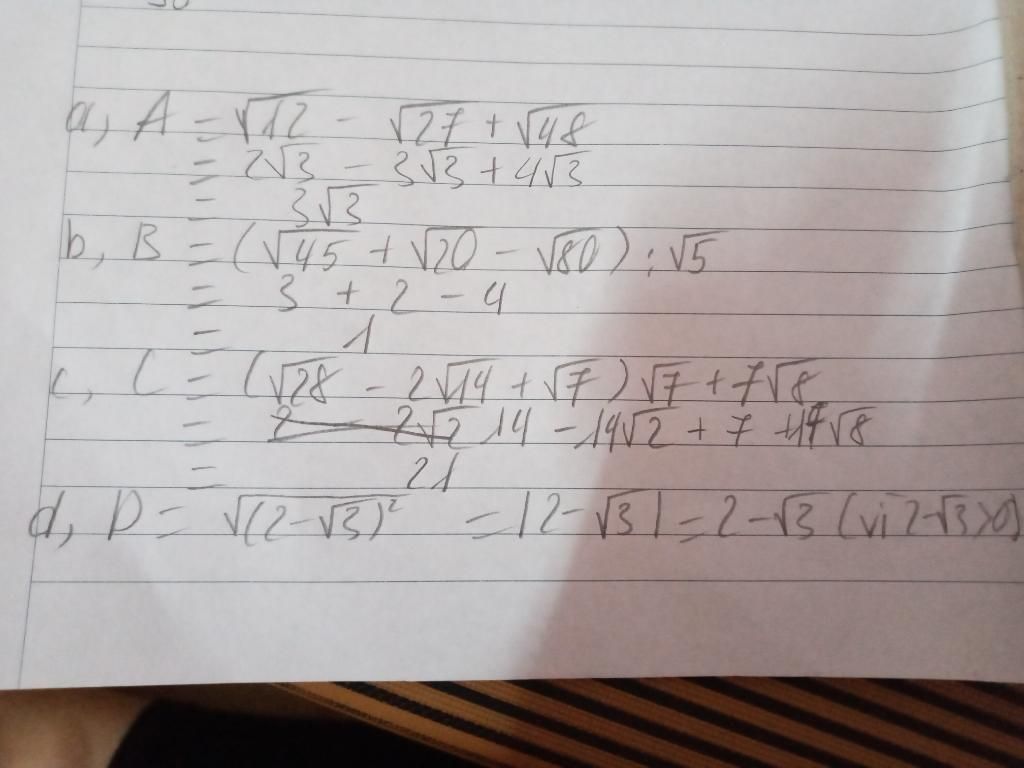 a, A = √12 - √27 + √48
= 2√3 - 3√3 + 4√3
= 3√3
b, B = (√45 + √20 - √80) : √5
= 3 + 2 - 4
= 1
c, C = (√28 - 2√14 + √7) √7 + 7√8
= 14 - 14√2 + 7 + 7√8
= 21
d, D = √(2-√3)² = |2-√3| = 2-√3 (vì 2-√3>0)